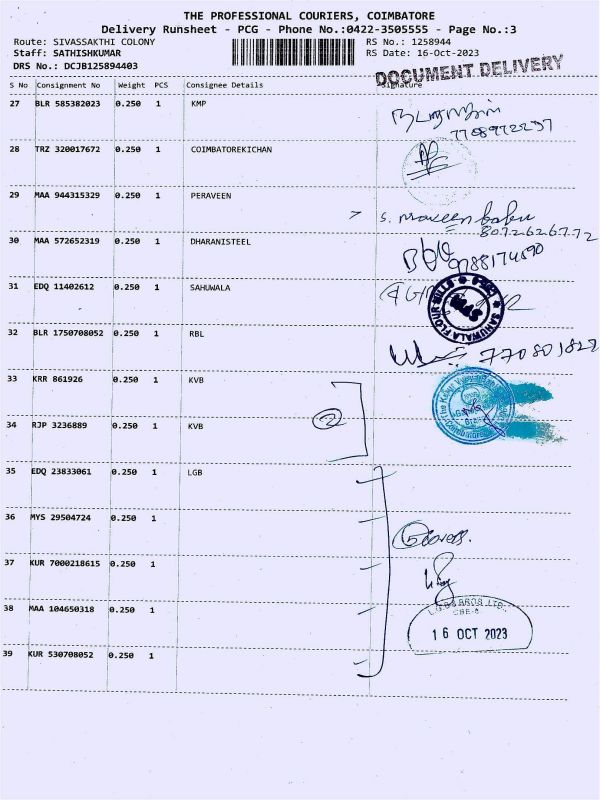 THE PROFESSIONAL COURIERS, COIMBATORE
Delivery Runsheet - PCG - Phone No.:0422-3505555 - Page No.:3
Route: SIVASSAKTHI COLONY RS No.: 1258944
Staff: SATHISHKUMAR RS Date: 16-Oct-2023
DRS No.: DCJB125894403
DOCUMENT DELIVERY
S No Consignment No Weight PCS Consignee Details Signature
27 BLR 585382023 0.250 1 KMP
28 TRZ 320017672 0.250 1 COIMBATOREKICHAN
29 MAA 944315329 0.250 1 PERAVEEN
S. Praveen babu
8072626772
30 MAA 572652319 0.250 1 DHARANISTEEL
9788174890
31 EDQ 11402612 0.250 1 SAHUWALA
SAHUWALA FLOUR MILLS
32 BLR 1750708052 0.250 1 RBL
33 KRR 861926 0.250 1 KVB
2
34 RJP 3236889 0.250 1 KVB
35 EDQ 23833061 0.250 1 LGB
36 MYS 29504724 0.250 1
5 covers.
37 KUR 7000218615 0.250 1
38 MAA 104650318 0.250 1
L.G.B & BROS LTD.,
CBE-6
16 OCT 2023
39 KUR 530708052 0.250 1